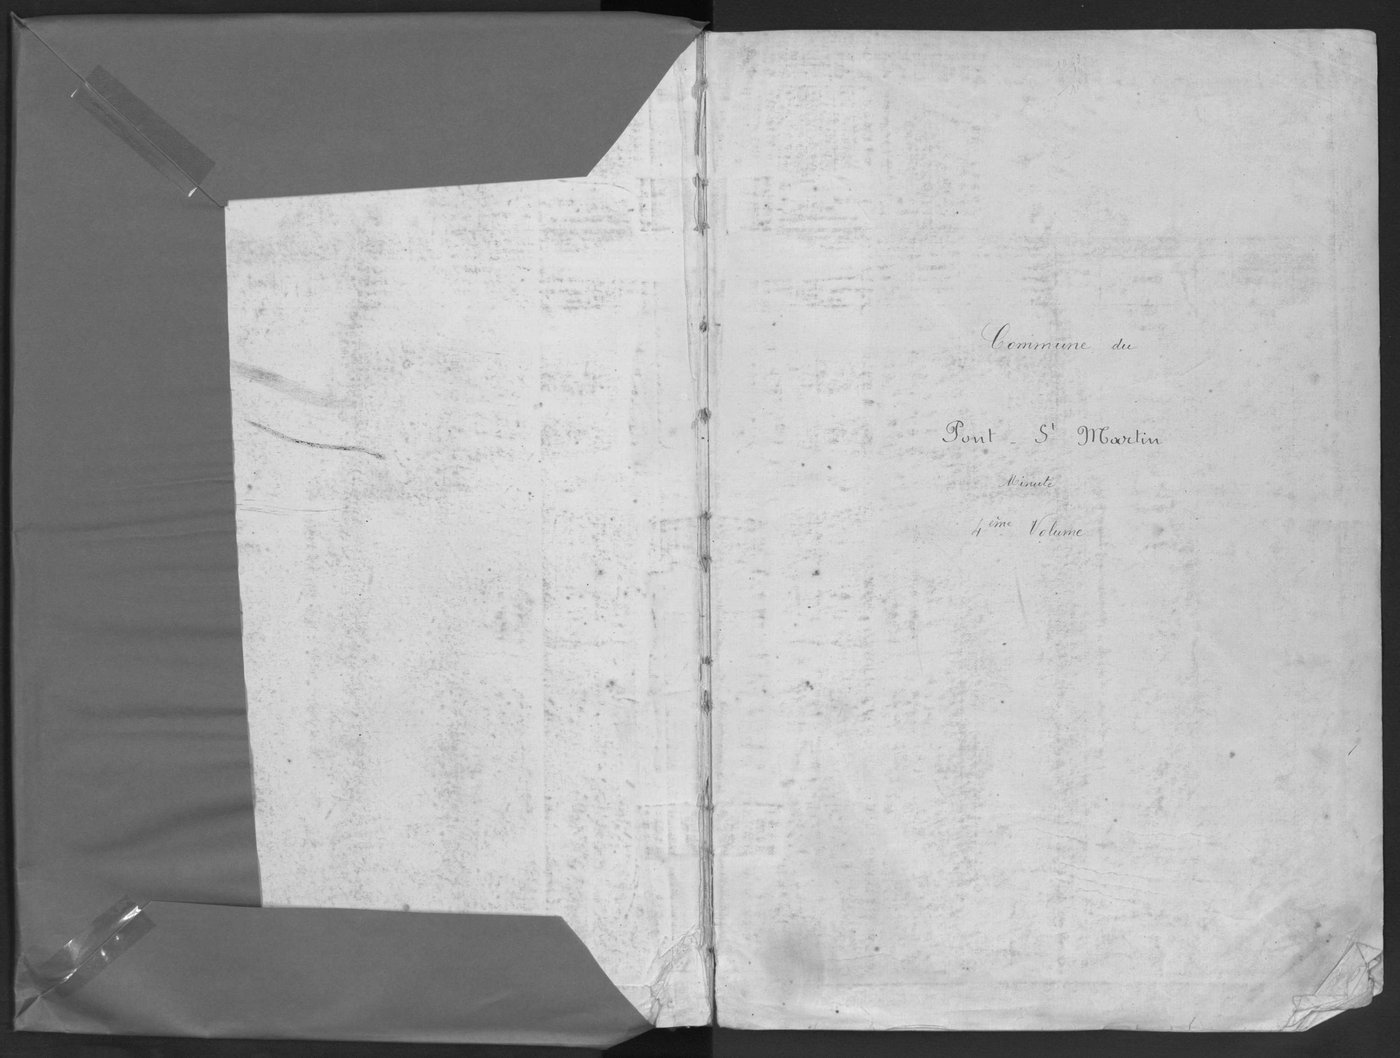 Commune du
Pont - St Martin
Minute
4ème Volume